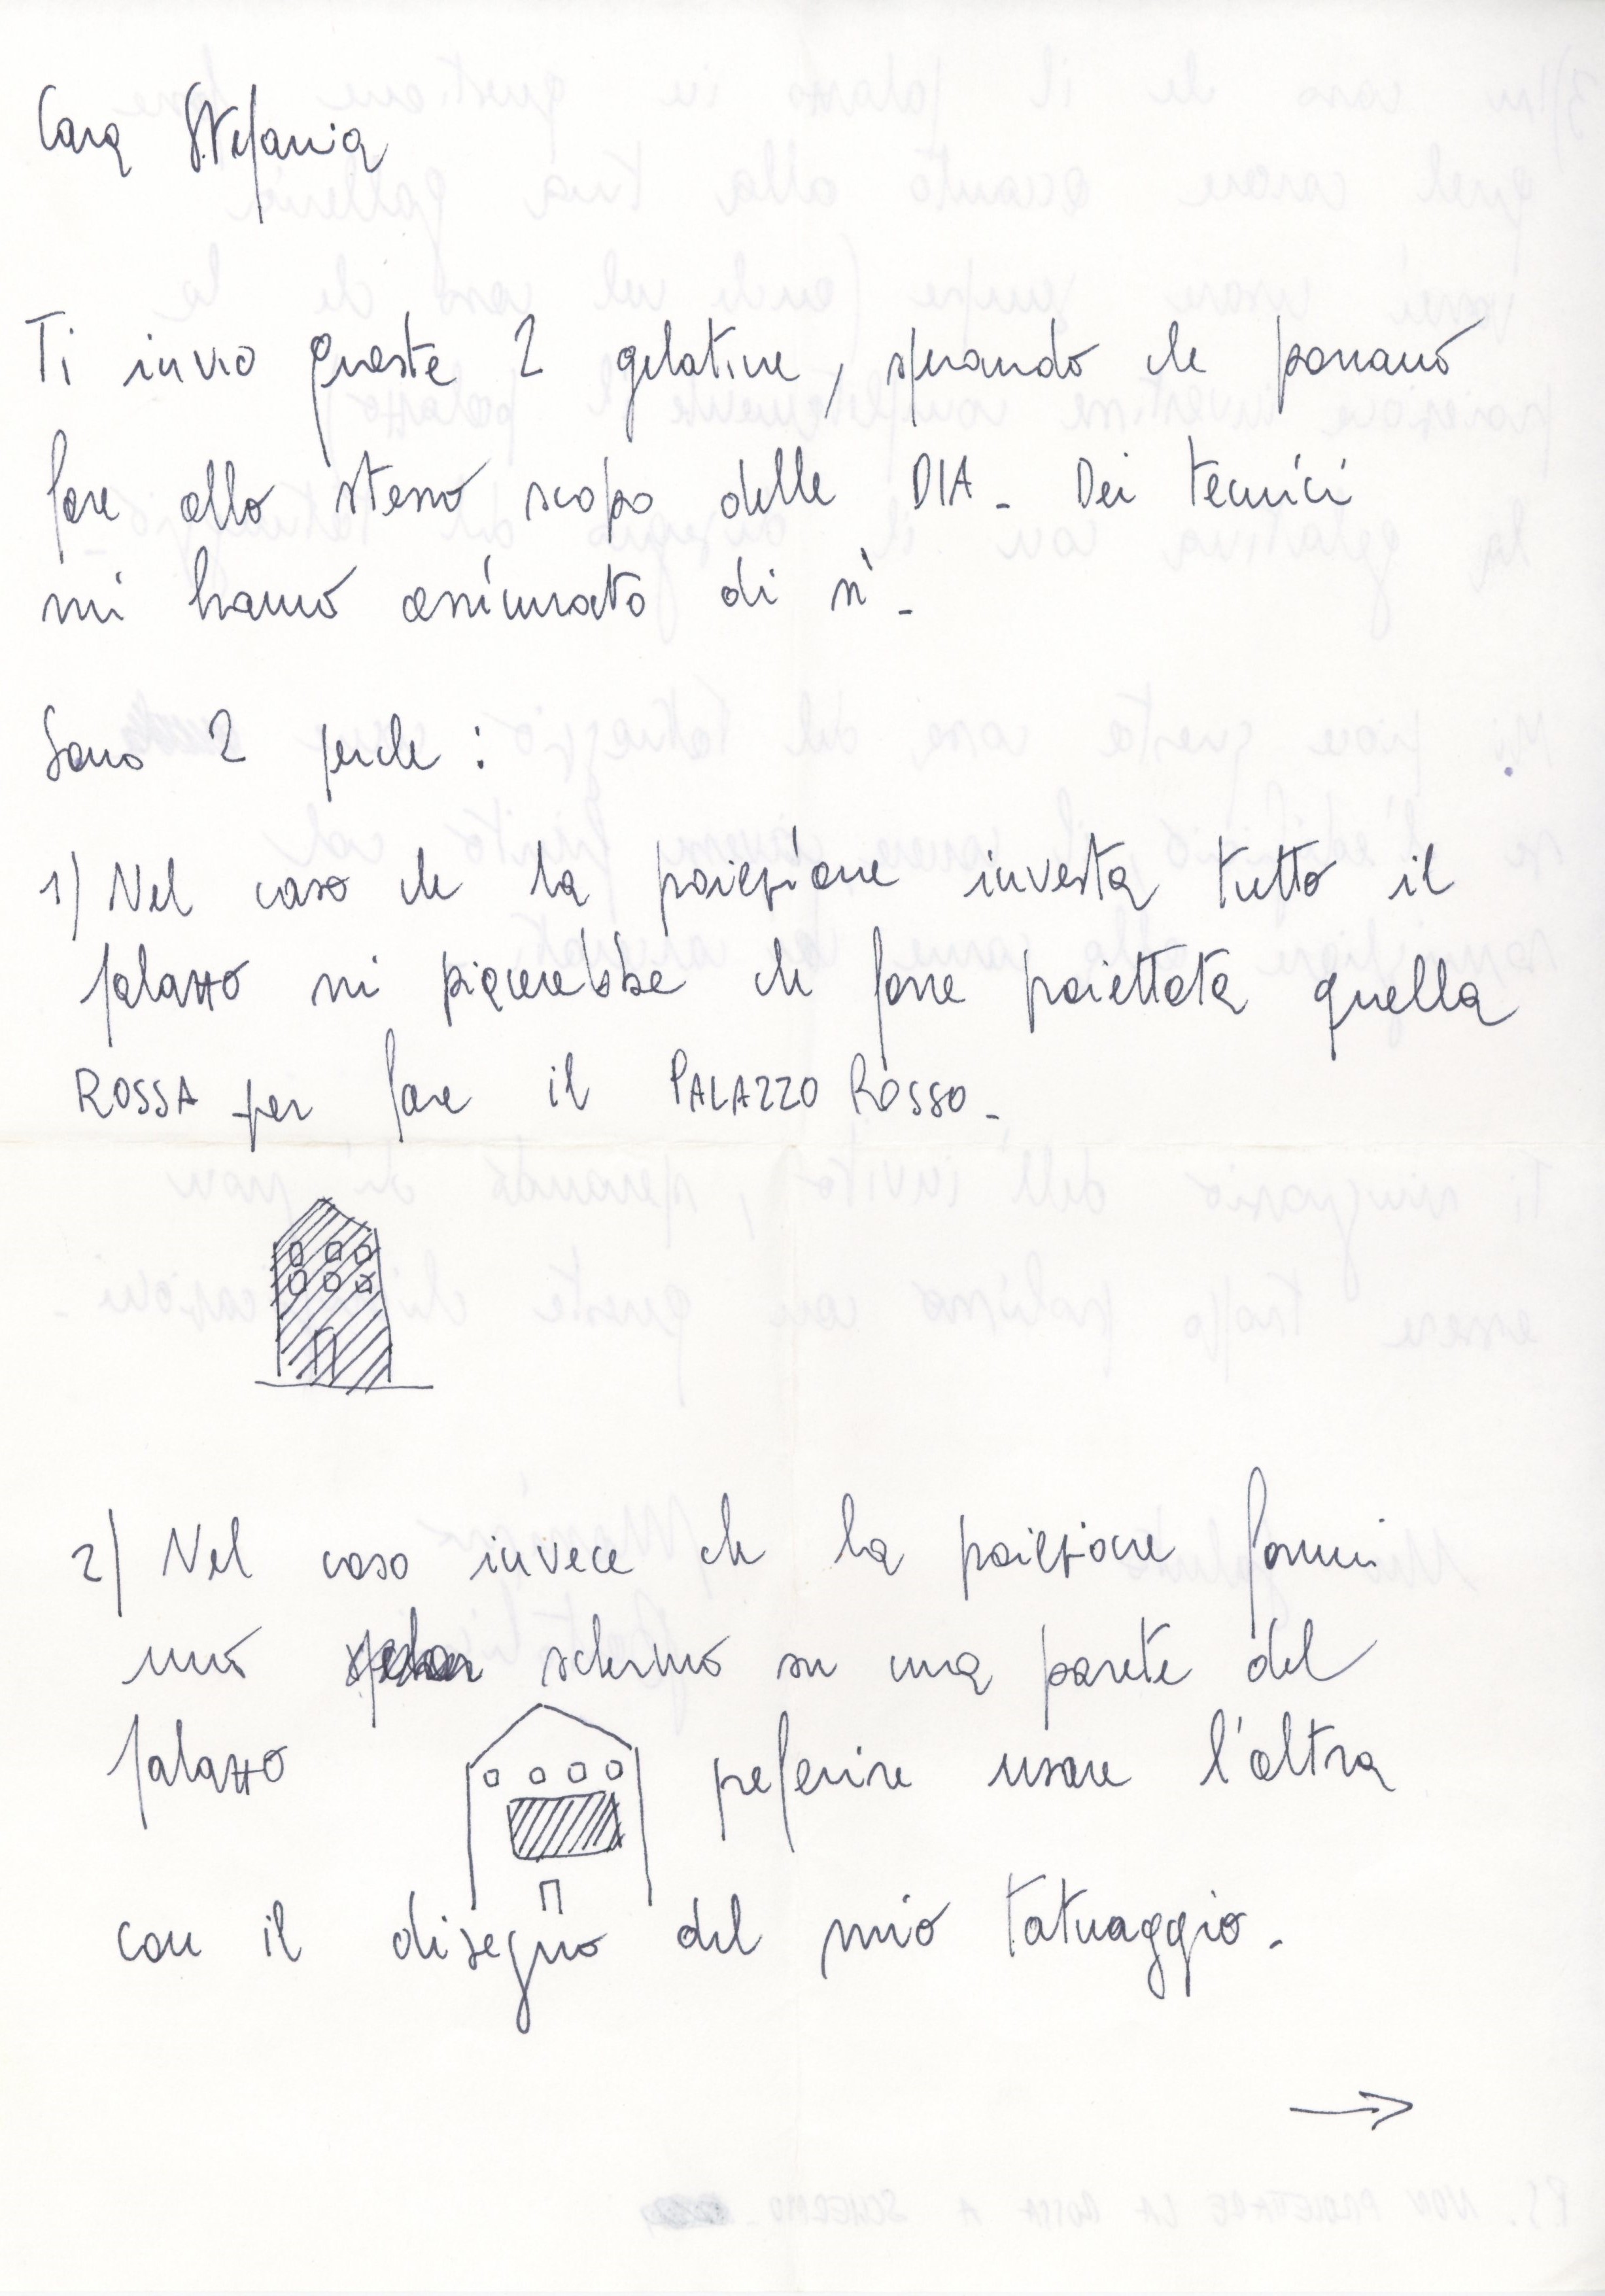 Cara Stefania
Ti invio queste 2 gelatine, sperando che possano
fare allo stesso scopo delle DIA. Dei tecnici
mi hanno assicurato di sì.
Sono 2 perche:
1) Nel caso che la proiezione investa tutto il
palazzo mi piacerebbe che fosse proiettata quella
ROSSA per fare il PALAZZO ROSSO.
2) Nel caso invece che la proiezione formi
uno schermo su una parete del
palazzo preferire usare l'altra
con il disegno del mio tatuaggio.